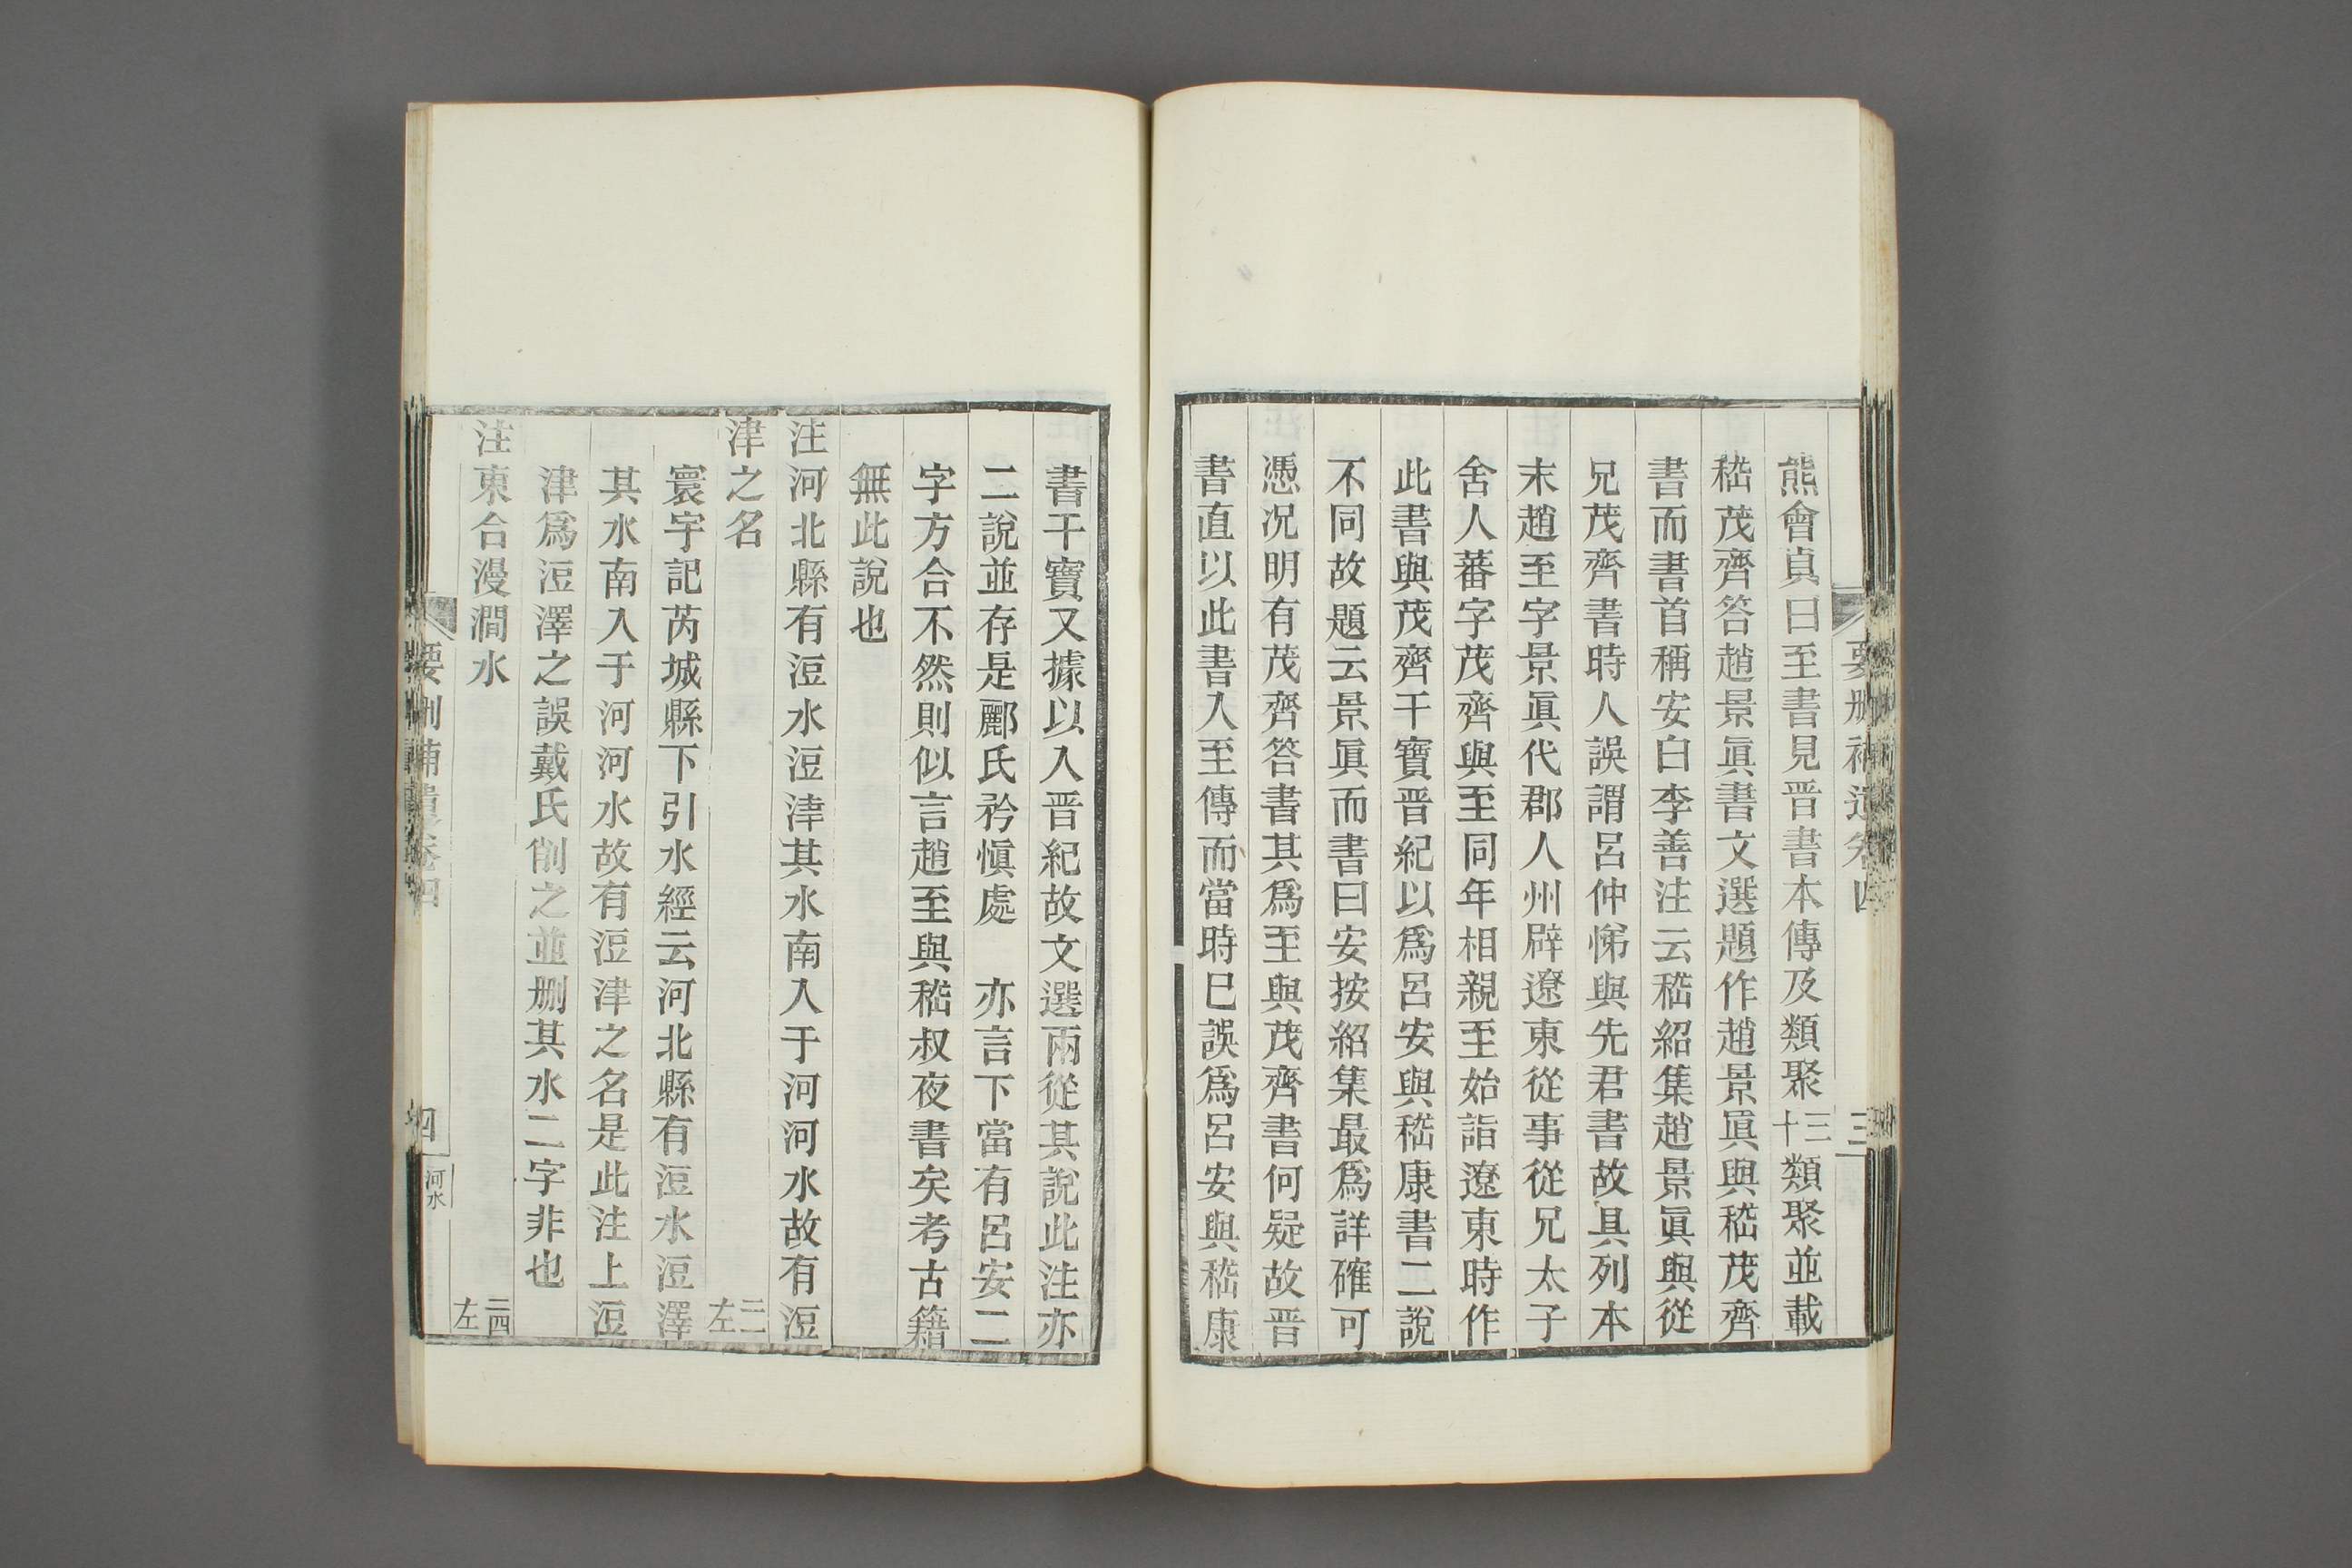 要刪補遺卷四
三
熊會貞曰至書見晉書本傳及類聚三十類聚並載
嵇茂齊答趙景眞書文選題作趙景眞與嵇茂齊
書而書首稱安白李善注云嵇紹集趙景眞與從
兄茂齊書時人誤謂呂仲悌與先君書故具列本
末趙至字景眞代郡人州辟遼東從事從兄太子
舍人蕃字茂齊與至同年相親至始詣遼東時作
此書與茂齊干寶晉紀以爲呂安與嵇康書二說
不同故題云景眞而書曰安按紹集最爲詳確可
憑况明有茂齊答書其爲至與茂齊書何疑故晉
書直以此書入至傳而當時已誤爲呂安與嵇康
書干寶又據以入晉紀故文選兩從其說此注亦
二說並存是酈氏矜愼處　亦言下當有呂安二
字方合不然則似言趙至與嵇叔夜書矣考古籍
無此說也
注河北縣有浢水浢津其水南入于河河水故有浢
津之名三二左
寰宇記芮城縣下引水經云河北縣有浢水浢澤
其水南入于河河水故有浢津之名是此注上浢
津爲浢澤之誤戴氏削之並刪其水二字非也
注東合漫澗水三四左
要刪補遺卷四
四
河水